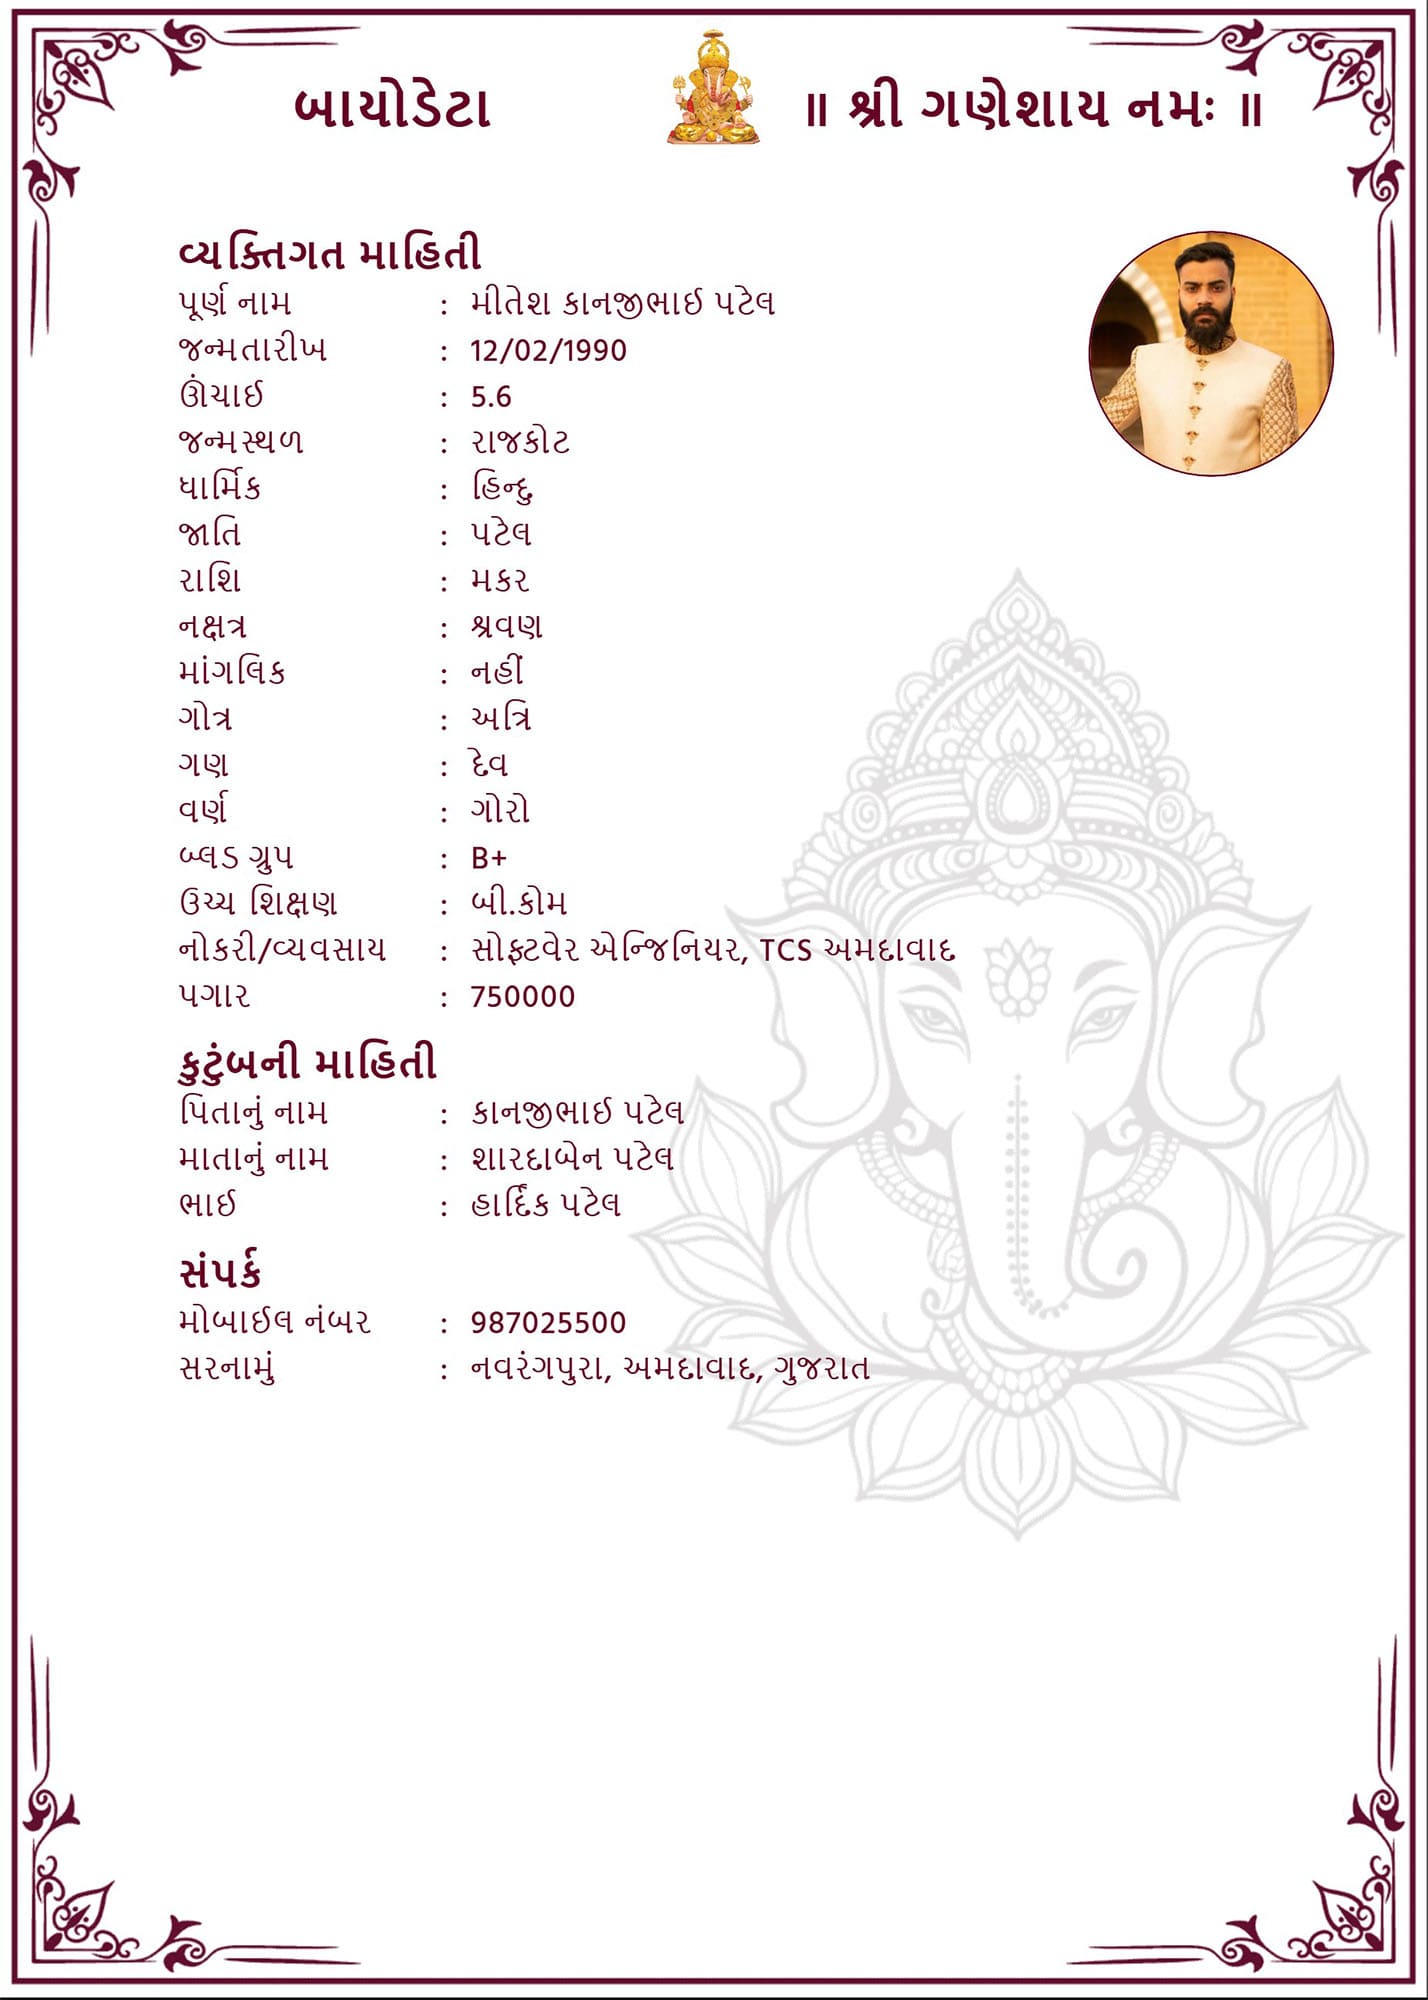 બાયોડેટા ॥ શ્રી ગણેશાય નમઃ ॥
વ્યક્તિગત માહિતી
પૂર્ણ નામ : મીતેશ કાનજીભાઈ પટેલ
જન્મતારીખ : 12/02/1990
ઊંચાઈ : 5.6
જન્મસ્થળ : રાજકોટ
ધાર્મિક : હિન્દુ
જાતિ : પટેલ
રાશિ : મકર
નક્ષત્ર : શ્રવણ
માંગલિક : નહીં
ગોત્ર : અત્રિ
ગણ : દેવ
વર્ણ : ગોરો
બ્લડ ગ્રુપ : B+
ઉચ્ચ શિક્ષણ : બી.કોમ
નોકરી/વ્યવસાય : સોફ્ટવેર એન્જિનિયર, TCS અમદાવાદ
પગાર : 750000
કુટુંબની માહિતી
પિતાનું નામ : કાનજીભાઈ પટેલ
માતાનું નામ : શારદાબેન પટેલ
ભાઈ : હાર્દિક પટેલ
સંપર્ક
મોબાઈલ નંબર : 987025500
સરનામું : નવરંગપુરા, અમદાવાદ, ગુજરાત